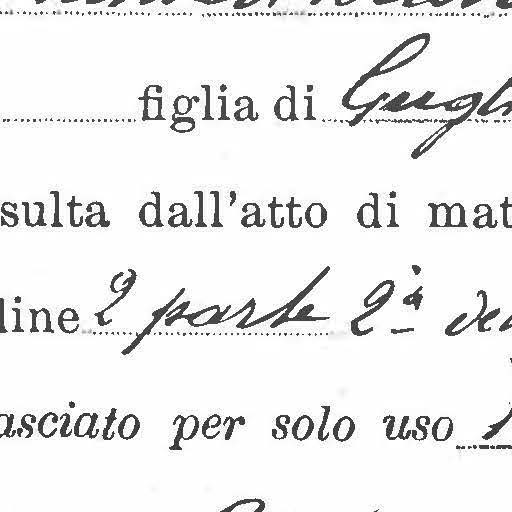 figlia di Gugl
sulta dall'atto di mat
line 2 parte 2ª del
asciato per solo uso